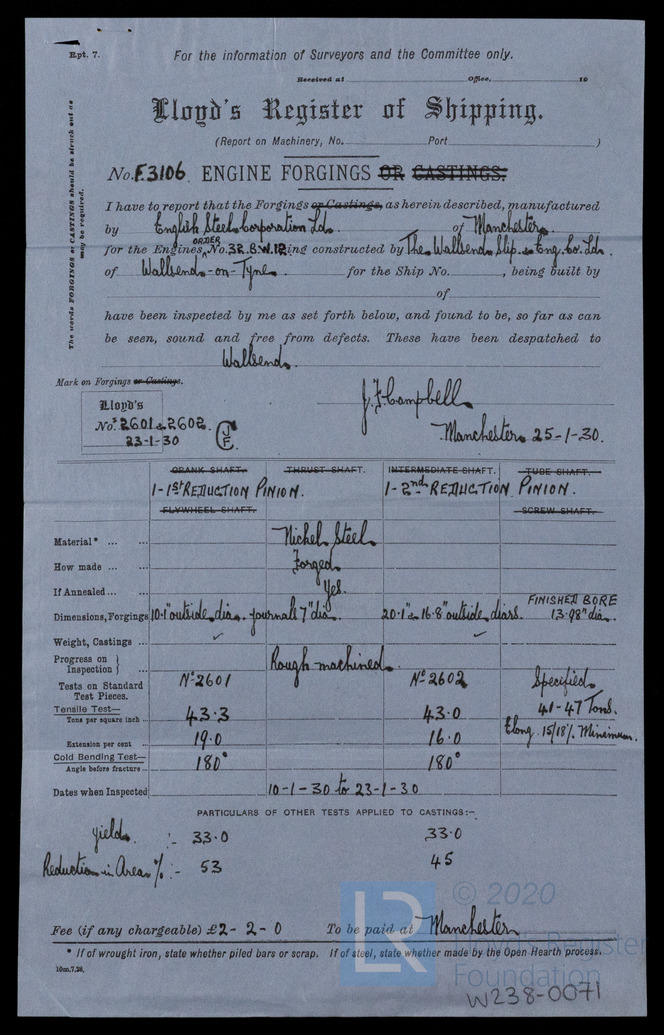 Rpt. 7.
For the information of Surveyors and the Committee only.
Received at Office, 19
Lloyd's Register of Shipping.
(Report on Machinery, No. Port )
No. F.3106. ENGINE FORGINGS OR CASTINGS.
The words FORGINGS or CASTINGS should be struck out as may be required.
I have to report that the Forgings or Castings, as herein described, manufactured
by English Steel Corporation Ld. of Manchester.
for the Engines, ORDER No. 3R.B.W.1P. ing constructed by The Wallsend Slip. & Eng. Co. Ld.
of Wallsend-on-Tyne. for the Ship No. , being built by
of
have been inspected by me as set forth below, and found to be, so far as can
be seen, sound and free from defects. These have been despatched to
Wallsend.
Mark on Forgings or Castings.
J.F. Campbell.
Lloyd's
Nos. 2601 & 2602.
23-1-30
J.F.
Manchester 25-1-30.
CRANK SHAFT. THRUST SHAFT. INTERMEDIATE SHAFT. TUBE SHAFT.
1-1st REDUCTION PINION. 1-2nd REDUCTION PINION.
FLYWHEEL SHAFT. SCREW SHAFT.
Material* ... ... Nickel Steel.
How made ... ... Forged.
If Annealed ... ... Yes.
Dimensions, Forgings 10.1" outside dia. journals 7" dia. 20.1" & 16.8" outside diars. FINISHED BORE 13.98" dia.
Weight, Castings ... ✓ ✓
Progress on Inspection } ... Rough machined.
Tests on Standard Test Pieces. No 2601 No 2602 Specified.
Tensile Test— Tons per square inch ... 43.3 43.0 41-47 Tons.
Extension per cent ... 19.0 16.0 Elong. 15/18% Minimum.
Cold Bending Test— Angle before fracture ... 180° 180°
Dates when Inspected 10-1-30 to 23-1-30
PARTICULARS OF OTHER TESTS APPLIED TO CASTINGS:—
Yield. :- 33.0 33.0
Reduction in Area % :- 53 45
Fee (if any chargeable) £2-2-0 To be paid at Manchester
* If of wrought iron, state whether piled bars or scrap. If of steel, state whether made by the Open Hearth process.
10m,7,28.
LR
© 2020
Lloyd's Register
Foundation
W238-0071